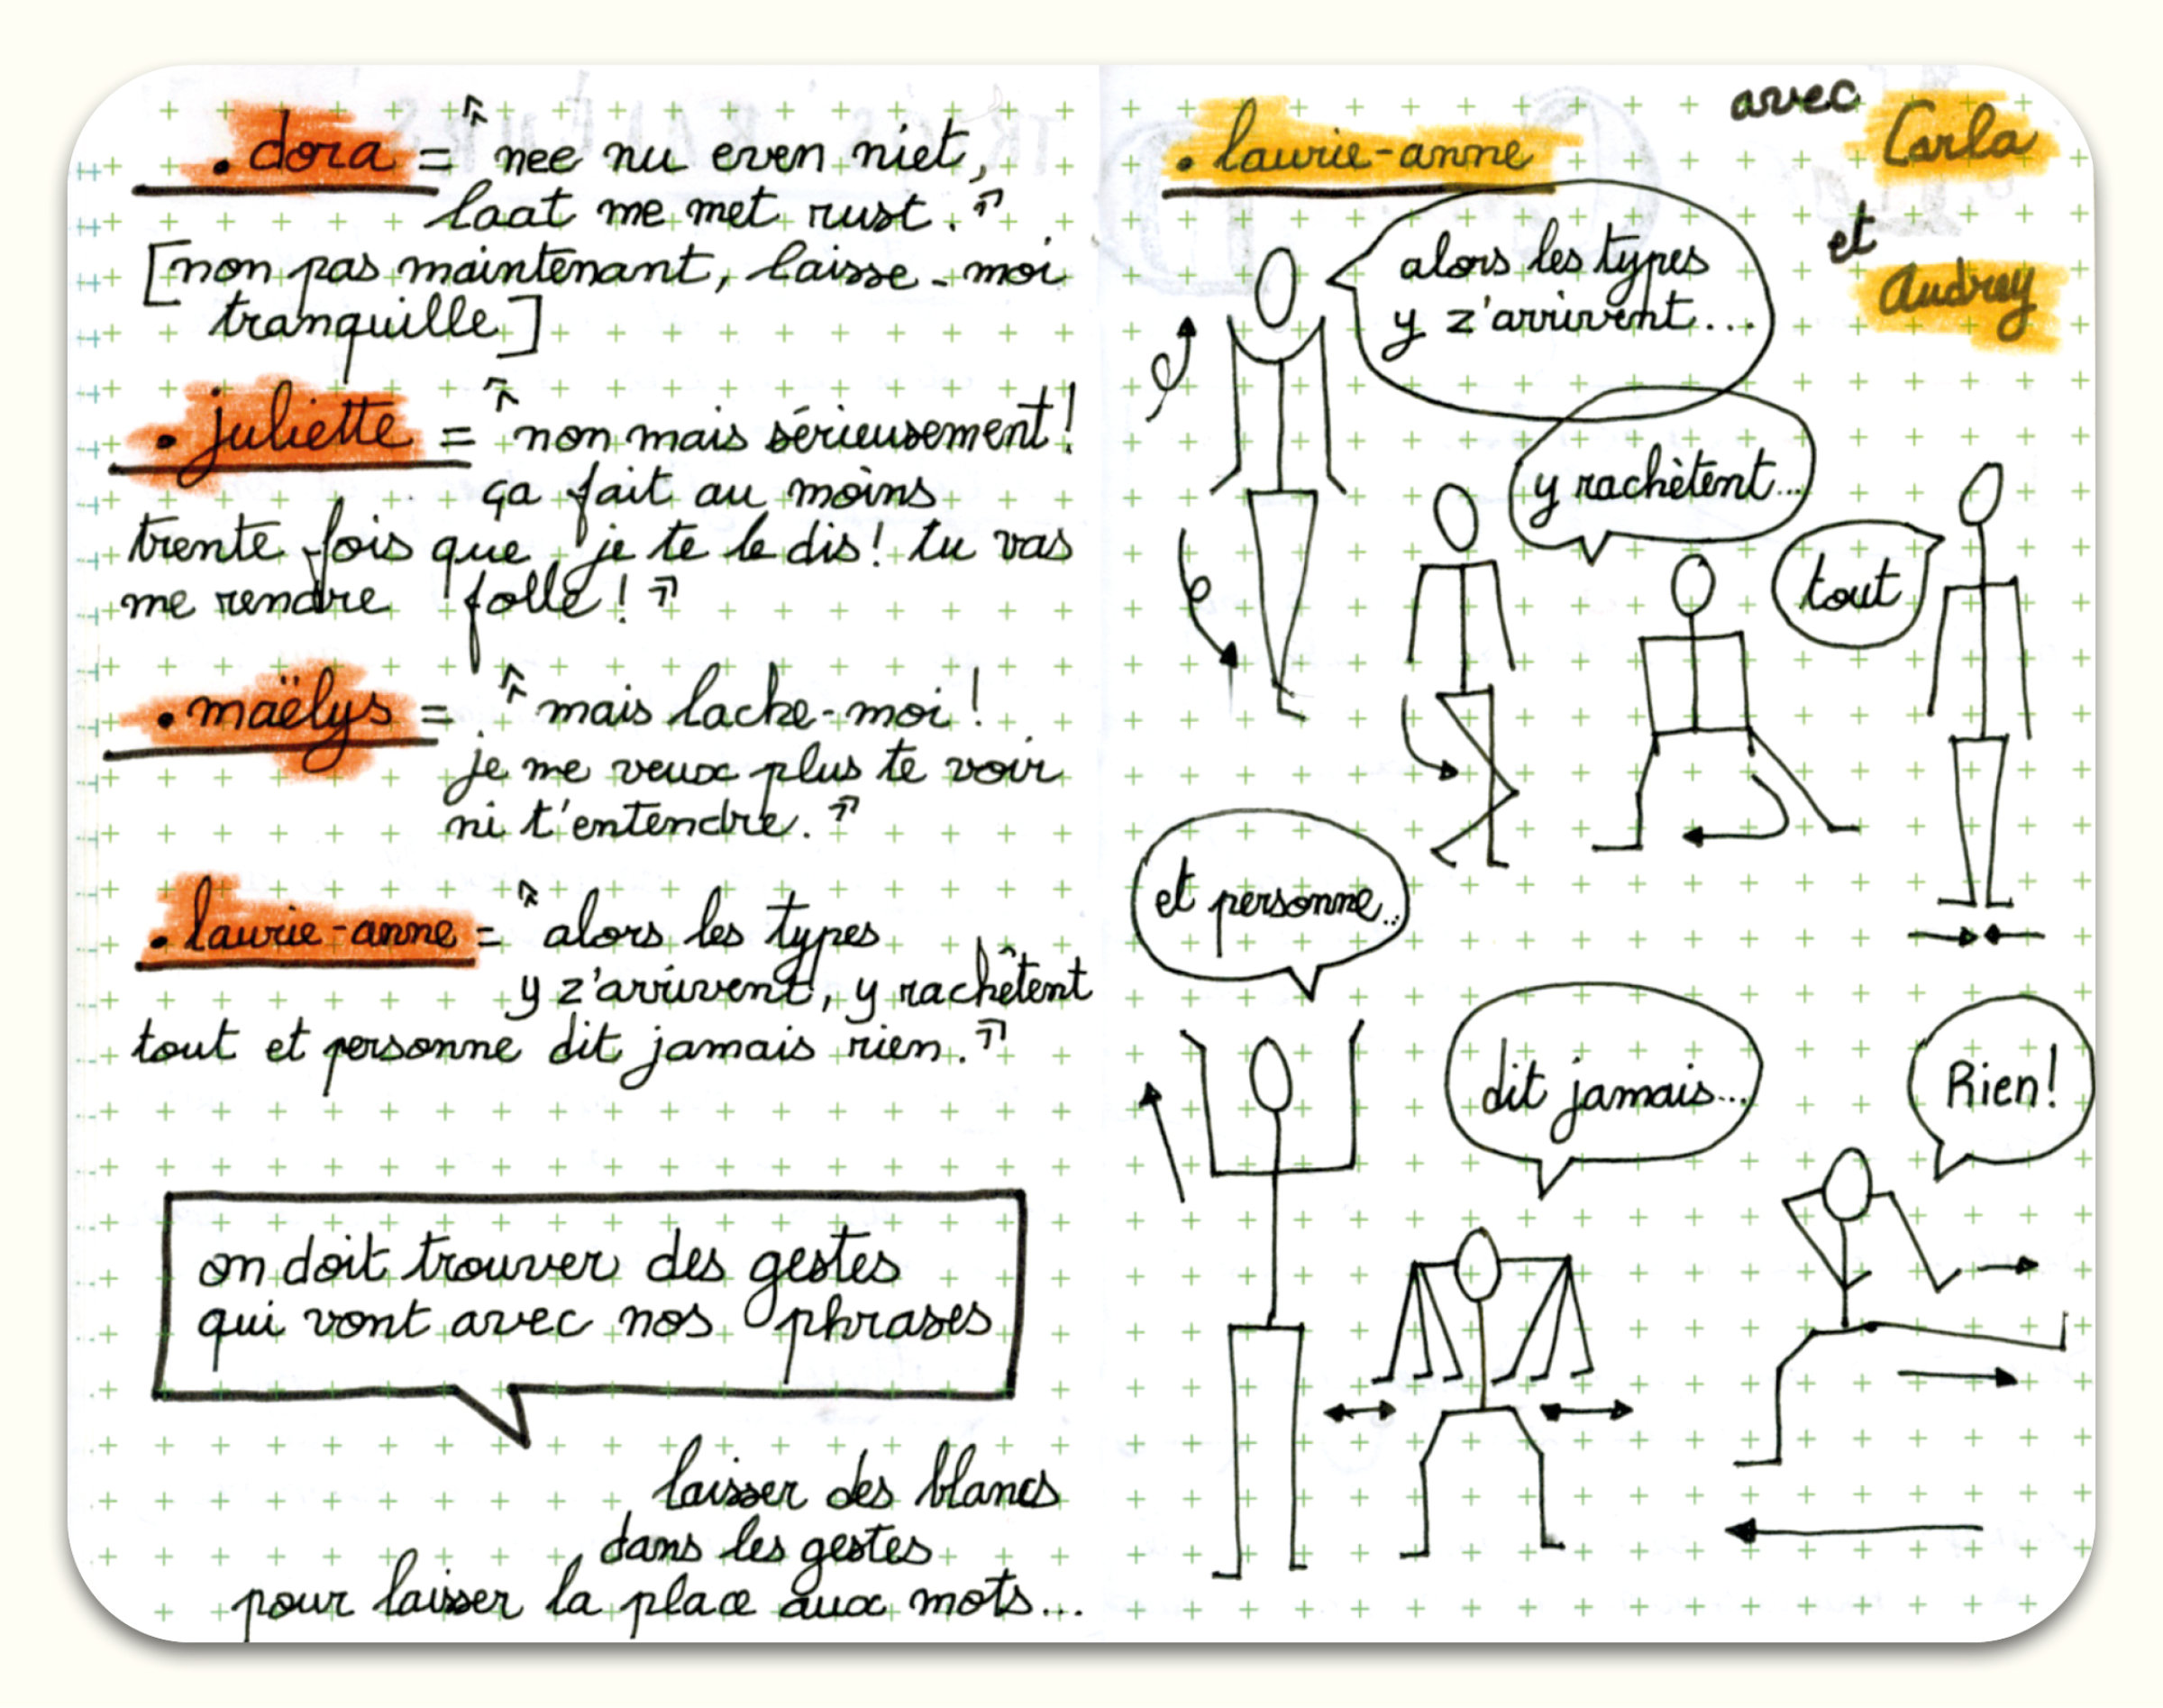 . dora = « nee nu even niet,
laat me met rust. »
[non pas maintenant, laisse-moi
tranquille]
. juliette = « non mais sérieusement!
ça fait au moins
trente fois que je te le dis! tu vas
me rendre folle! »
. maëlys = « mais lache-moi!
je me veux plus te voir
ni t'entendre. »
. laurie-anne = « alors les types
y z'arrivent, y rachêtent
tout et personne dit jamais rien. »
on doit trouver des gestes
qui vont avec nos phrases
laisser des blancs
dans les gestes
pour laisser la place aux mots...
. laurie-anne
avec Carla
et
Audrey
alors les types
y z'arrivent...
y rachètent...
tout
et personne...
dit jamais...
Rien!